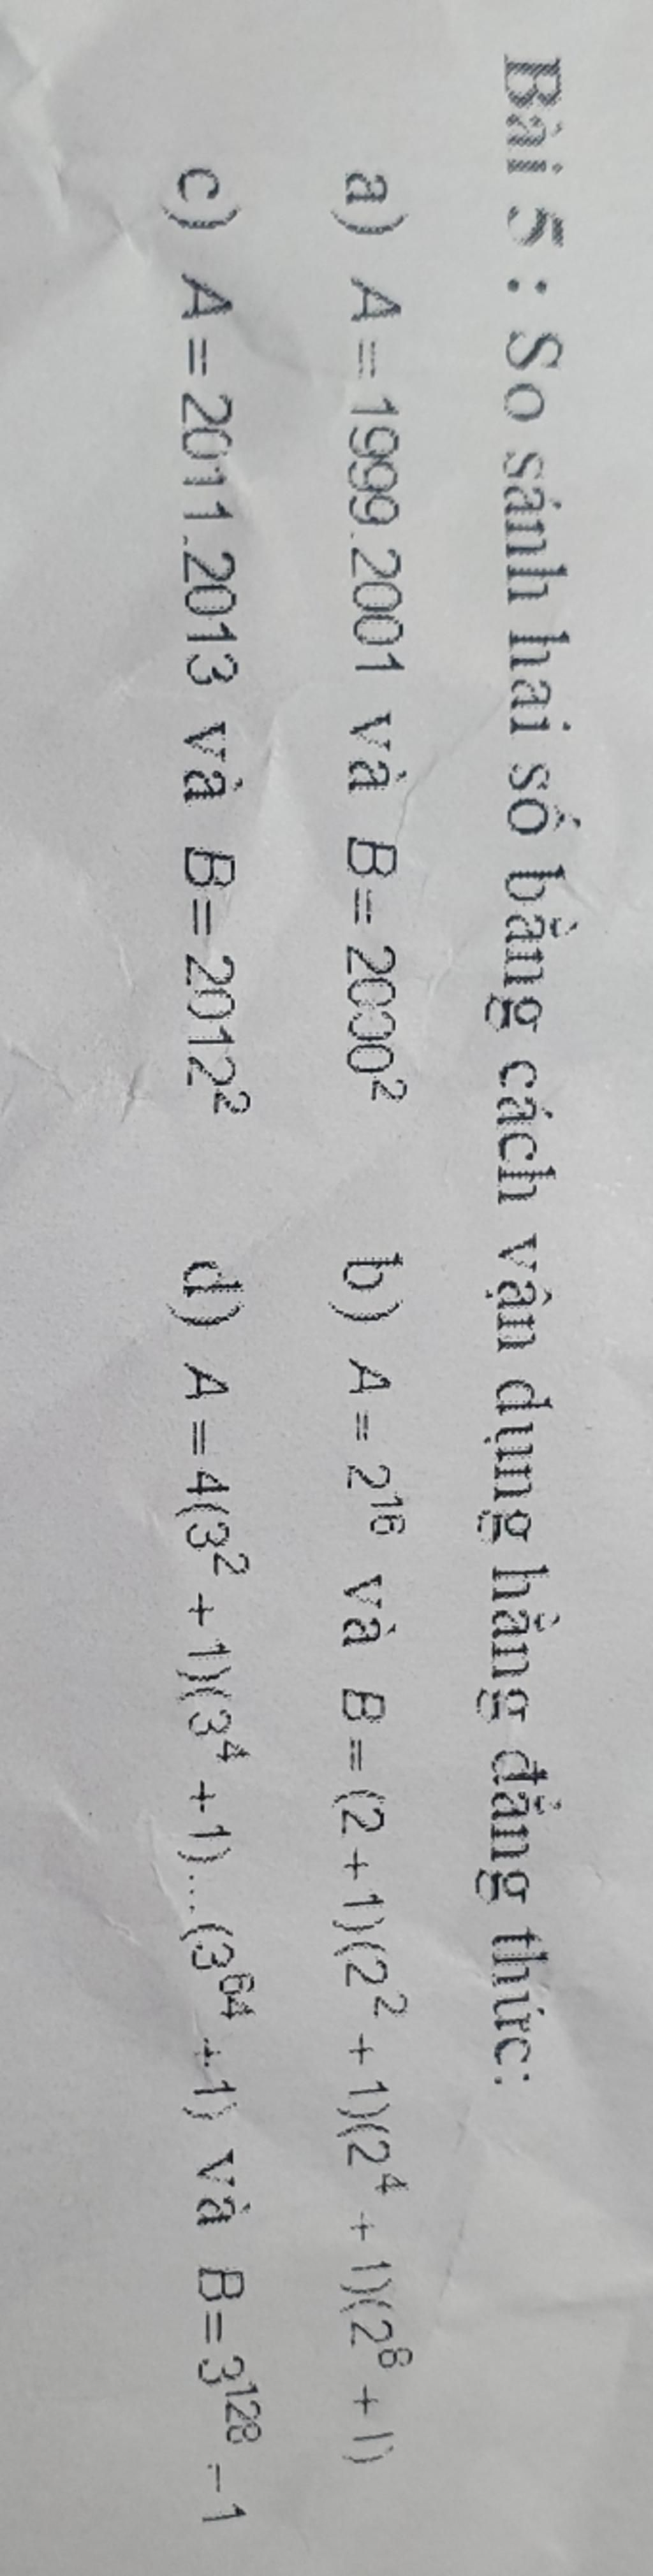 Bài 5 : So sánh hai số bằng cách vận dụng hằng đẳng thức:
a) A = 1999.2001 và B = 2000² b) A = 2¹⁶ và B = (2 + 1)(2² + 1)(2⁴ + 1)(2⁸ + 1)
c) A = 2011.2013 và B = 2012² d) A = 4(3² + 1)(3⁴ + 1)...(3⁶⁴ + 1) và B = 3¹²⁸ − 1